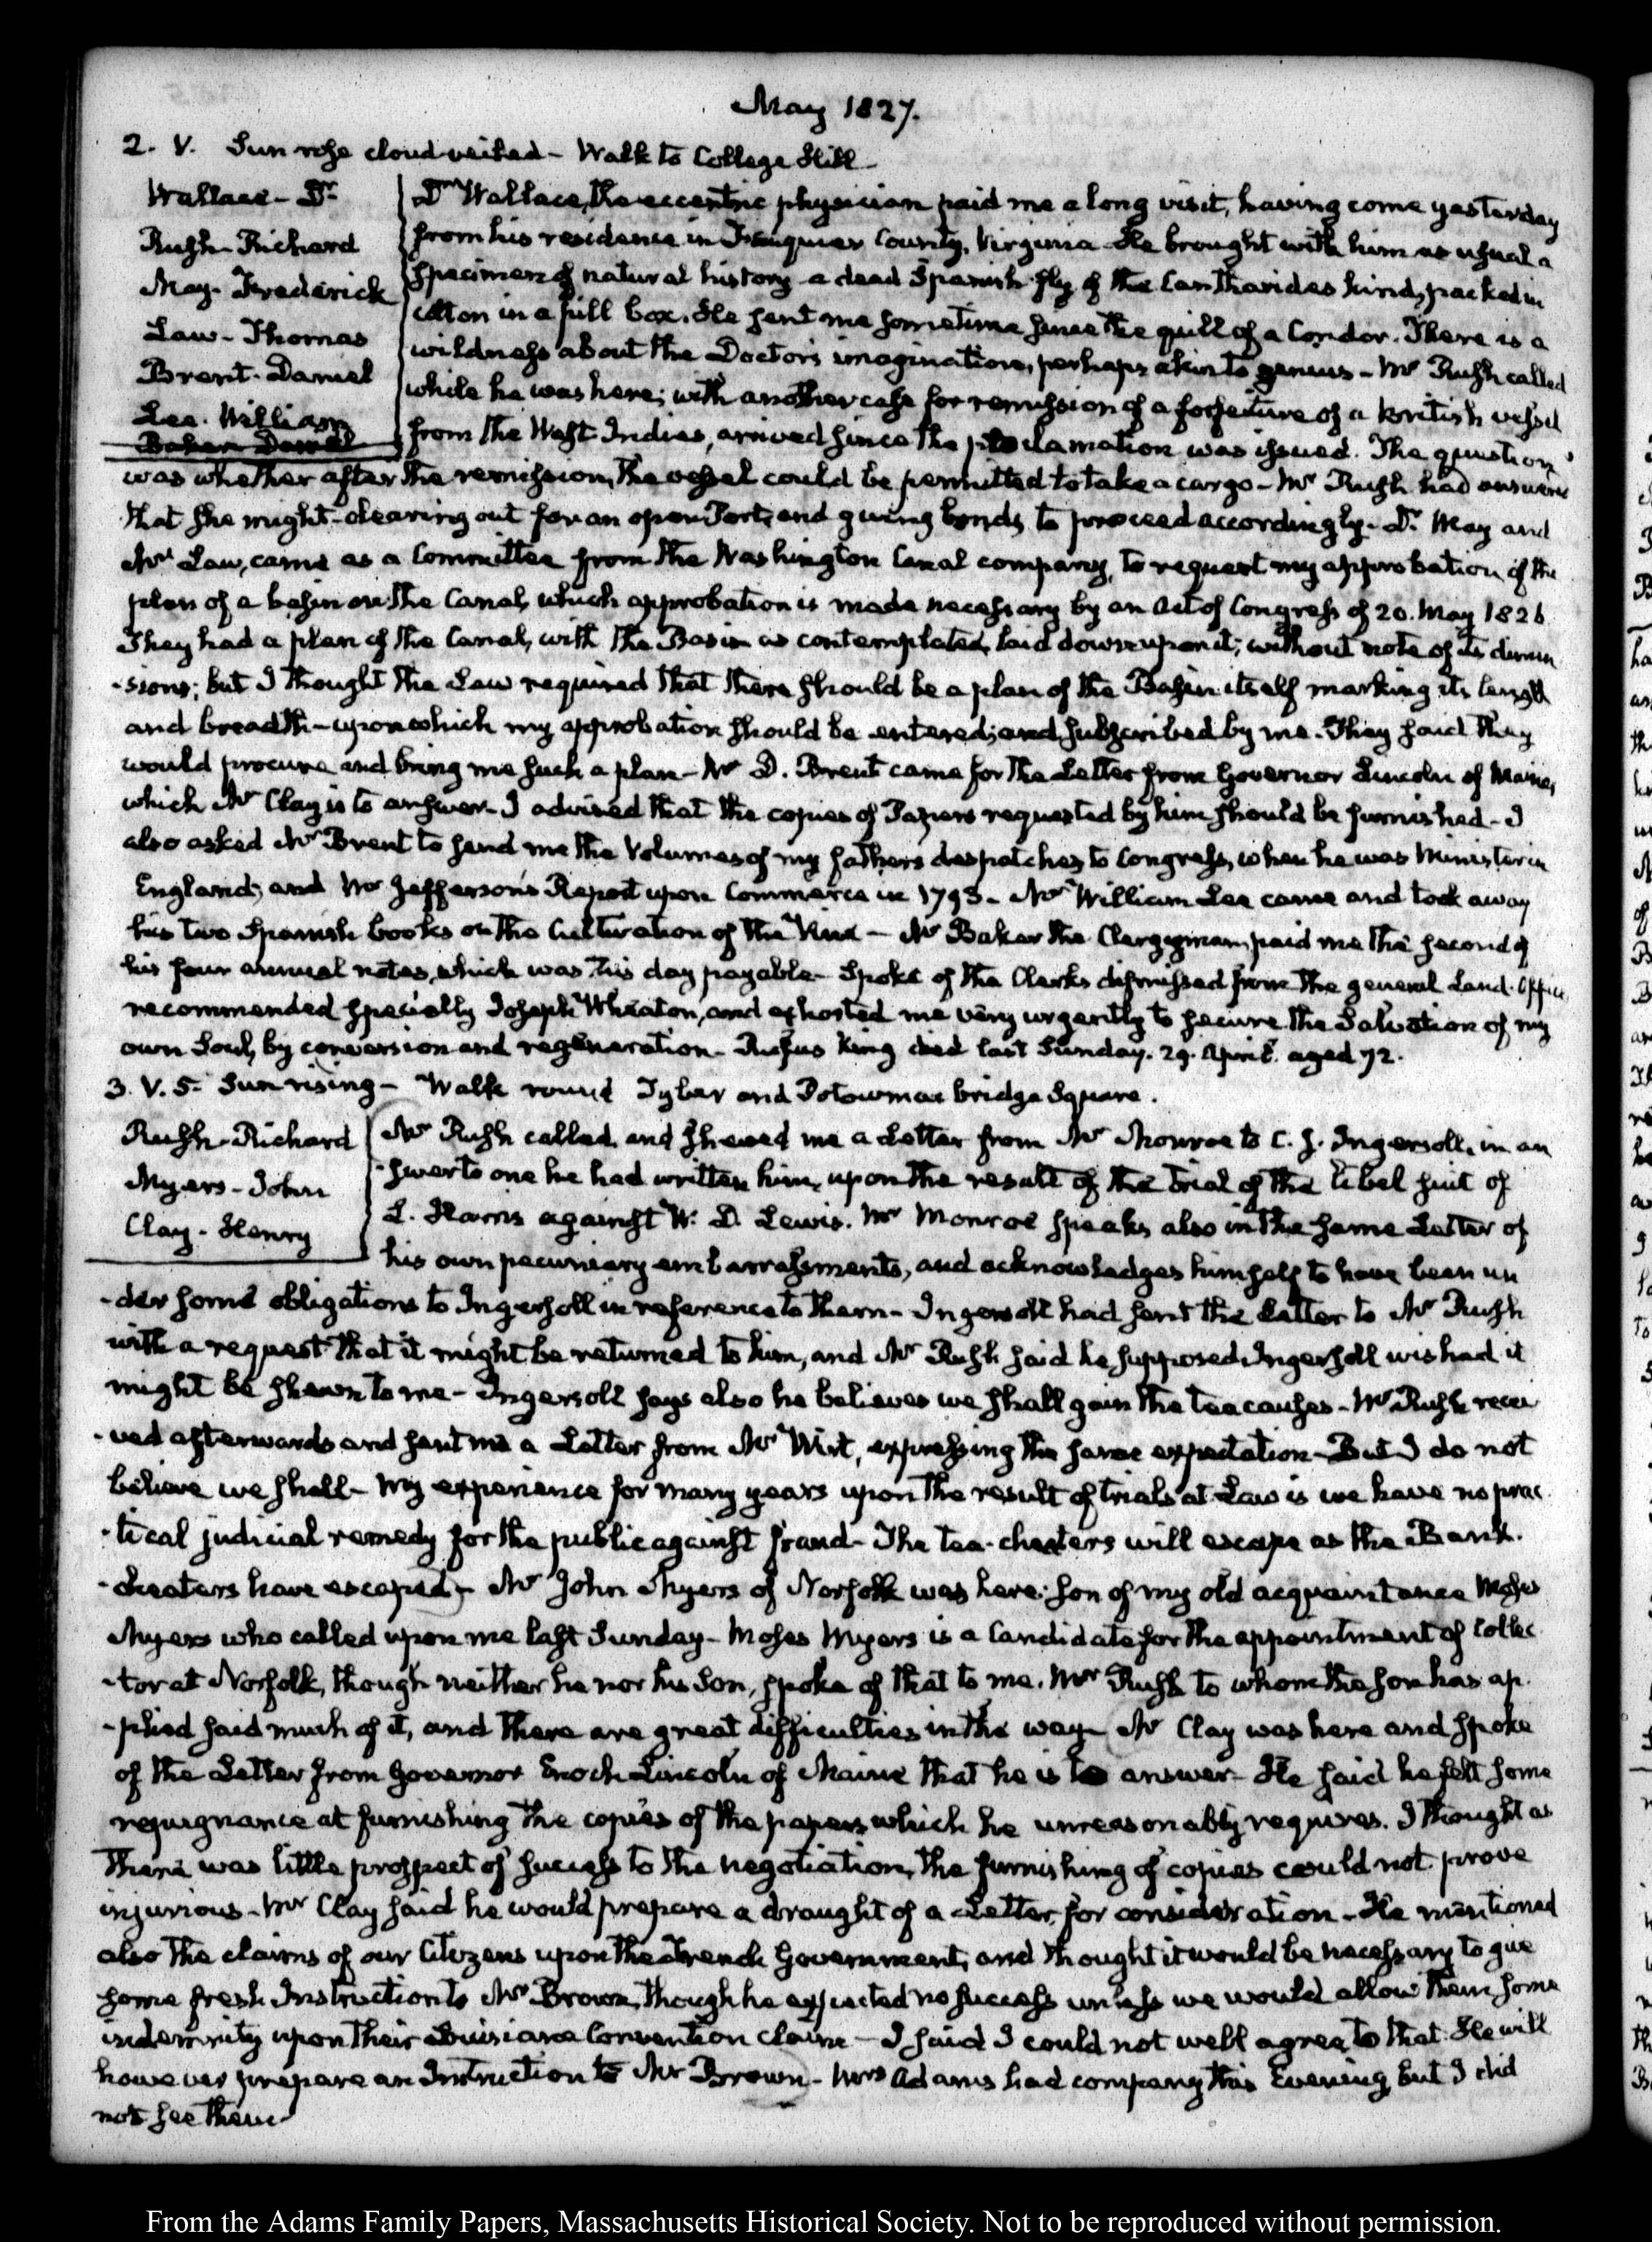 May 1827.
2. V. Sun rose cloud veiled - Walk to College Hill -
Wallace - Dr.
Rush - Richard
May - Frederick
Law - Thomas
Brent - Daniel
Lee - William
Baker Daniel
Dr. Wallace, the eccentric physician paid me a long visit, having come yesterday
from his residence in Fauquier County, Virginia - He brought with him as usual a
Specimen of natural history - a dead Spanish fly of the Cantharides kind, packed in
cotton in a pill box. He sent me sometime since the quill of a Condor. There is a
wildness about the Doctor's imagination, perhaps akin to genius - Mr Rush called
while he was here; with another case for remission of a forfeiture of a British vessel
from the West-Indies, arrived since the proclamation was issued. The question
was whether after the remission, the vessel could be permitted to take a cargo - Mr Rush had answered
that she might - clearing out for an open Port, and giving bonds to proceed accordingly - Dr. May and
Mr Law, came as a Committee from the Washington Canal company, to request my approbation of the
plan of a basin on the Canal, which approbation is made necessary by an Act of Congress of 20. May 1826
They had a plan of the Canal, with the Basin as contemplated, laid down upon it; without note of its dimen
-sions; but I thought the Law required that there should be a plan of the Basin itself marking its length
and breadth - upon which my approbation should be entered; and subscribed by me - They said they
would procure and bring me such a plan - Mr D. Brent came for the Letter from Governor Lincoln of Maine,
which Mr Clay is to answer - I advised that the copies of Papers requested by him should be furnished - I
also asked Mr Brent to send me the Volumes of my fathers despatches to Congress, when he was Minister in
England; and Mr Jefferson's Report upon Commerce in 1793 - Mr William Lee came and took away
his two Spanish books on the Cultivation of the Vine - Mr Baker the Clergyman, paid me the second of
his four annual notes, which was this day payable - Spoke of the Clerks dismissed from the general Land-Office
recommended specially Joseph Wheaton, and exhorted me very urgently to secure the Salvation of my
own Soul, by conversion and regeneration - Rufus King died last Sunday. 29. April. aged 72.
3. V. 5. Sun rising - Walk round Tyber and Potowmac bridge Square.
Rush - Richard
Myers - John
Clay - Henry
Mr Rush called, and shewed me a Letter from Mr Monroe to C. J. Ingersoll, in an
-swer to one he had written him, upon the result of the trial of the libel suit of
L. Harris against W. D. Lewis. Mr Monroe speaks also in the same Letter of
his own pecuniary embarrassments, and acknowledges himself to have been un
-der some obligations to Ingersoll in reference to them - Ingersoll had sent the Letter to Mr Rush
with a request that it might be returned to him, and Mr Rush said he supposed Ingersoll wished it
might be shewn to me - Ingersoll says also he believes we shall gain the tea causes - Mr Rush recei
-ved afterwards and sent me a Letter from Mr Wirt, expressing the same expectation - But I do not
believe we shall - My experience for many years upon the result of trials at Law is we have no prac
-tical judicial remedy for the public against fraud - The tea-cheaters will escape as the Bank-
-cheaters have escaped - Mr John Myers of Norfolk was here: Son of my old acquaintance Moses
Myers who called upon me last Sunday - Moses Myers is a Candidate for the appointment of Collec
-tor at Norfolk, though neither he nor his Son, spoke of that to me. Mr Rush to whom the son has ap
-plied said much of it, and there are great difficulties in the way - Mr Clay was here and spoke
of the Letter from Governor Enoch Lincoln of Maine that he is to answer - He said he felt some
repugnance at furnishing the copies of the papers which he unreasonably requires. I thought as
there was little prospect of success to the negotiation, the furnishing of copies could not prove
injurious - Mr Clay said he would prepare a draught of a Letter, for consideration - He mentioned
also the claims of our Citizens upon the French Government, and thought it would be necessary to give
some fresh Instruction to Mr Brown, though he expected no success unless we would allow them some
indemnity upon their Louisiana Convention claim - I said I could not well agree to that. He will
however prepare an Instruction to Mr Brown - Mrs Adams had company this Evening, but I did
not see them -
From the Adams Family Papers, Massachusetts Historical Society. Not to be reproduced without permission.